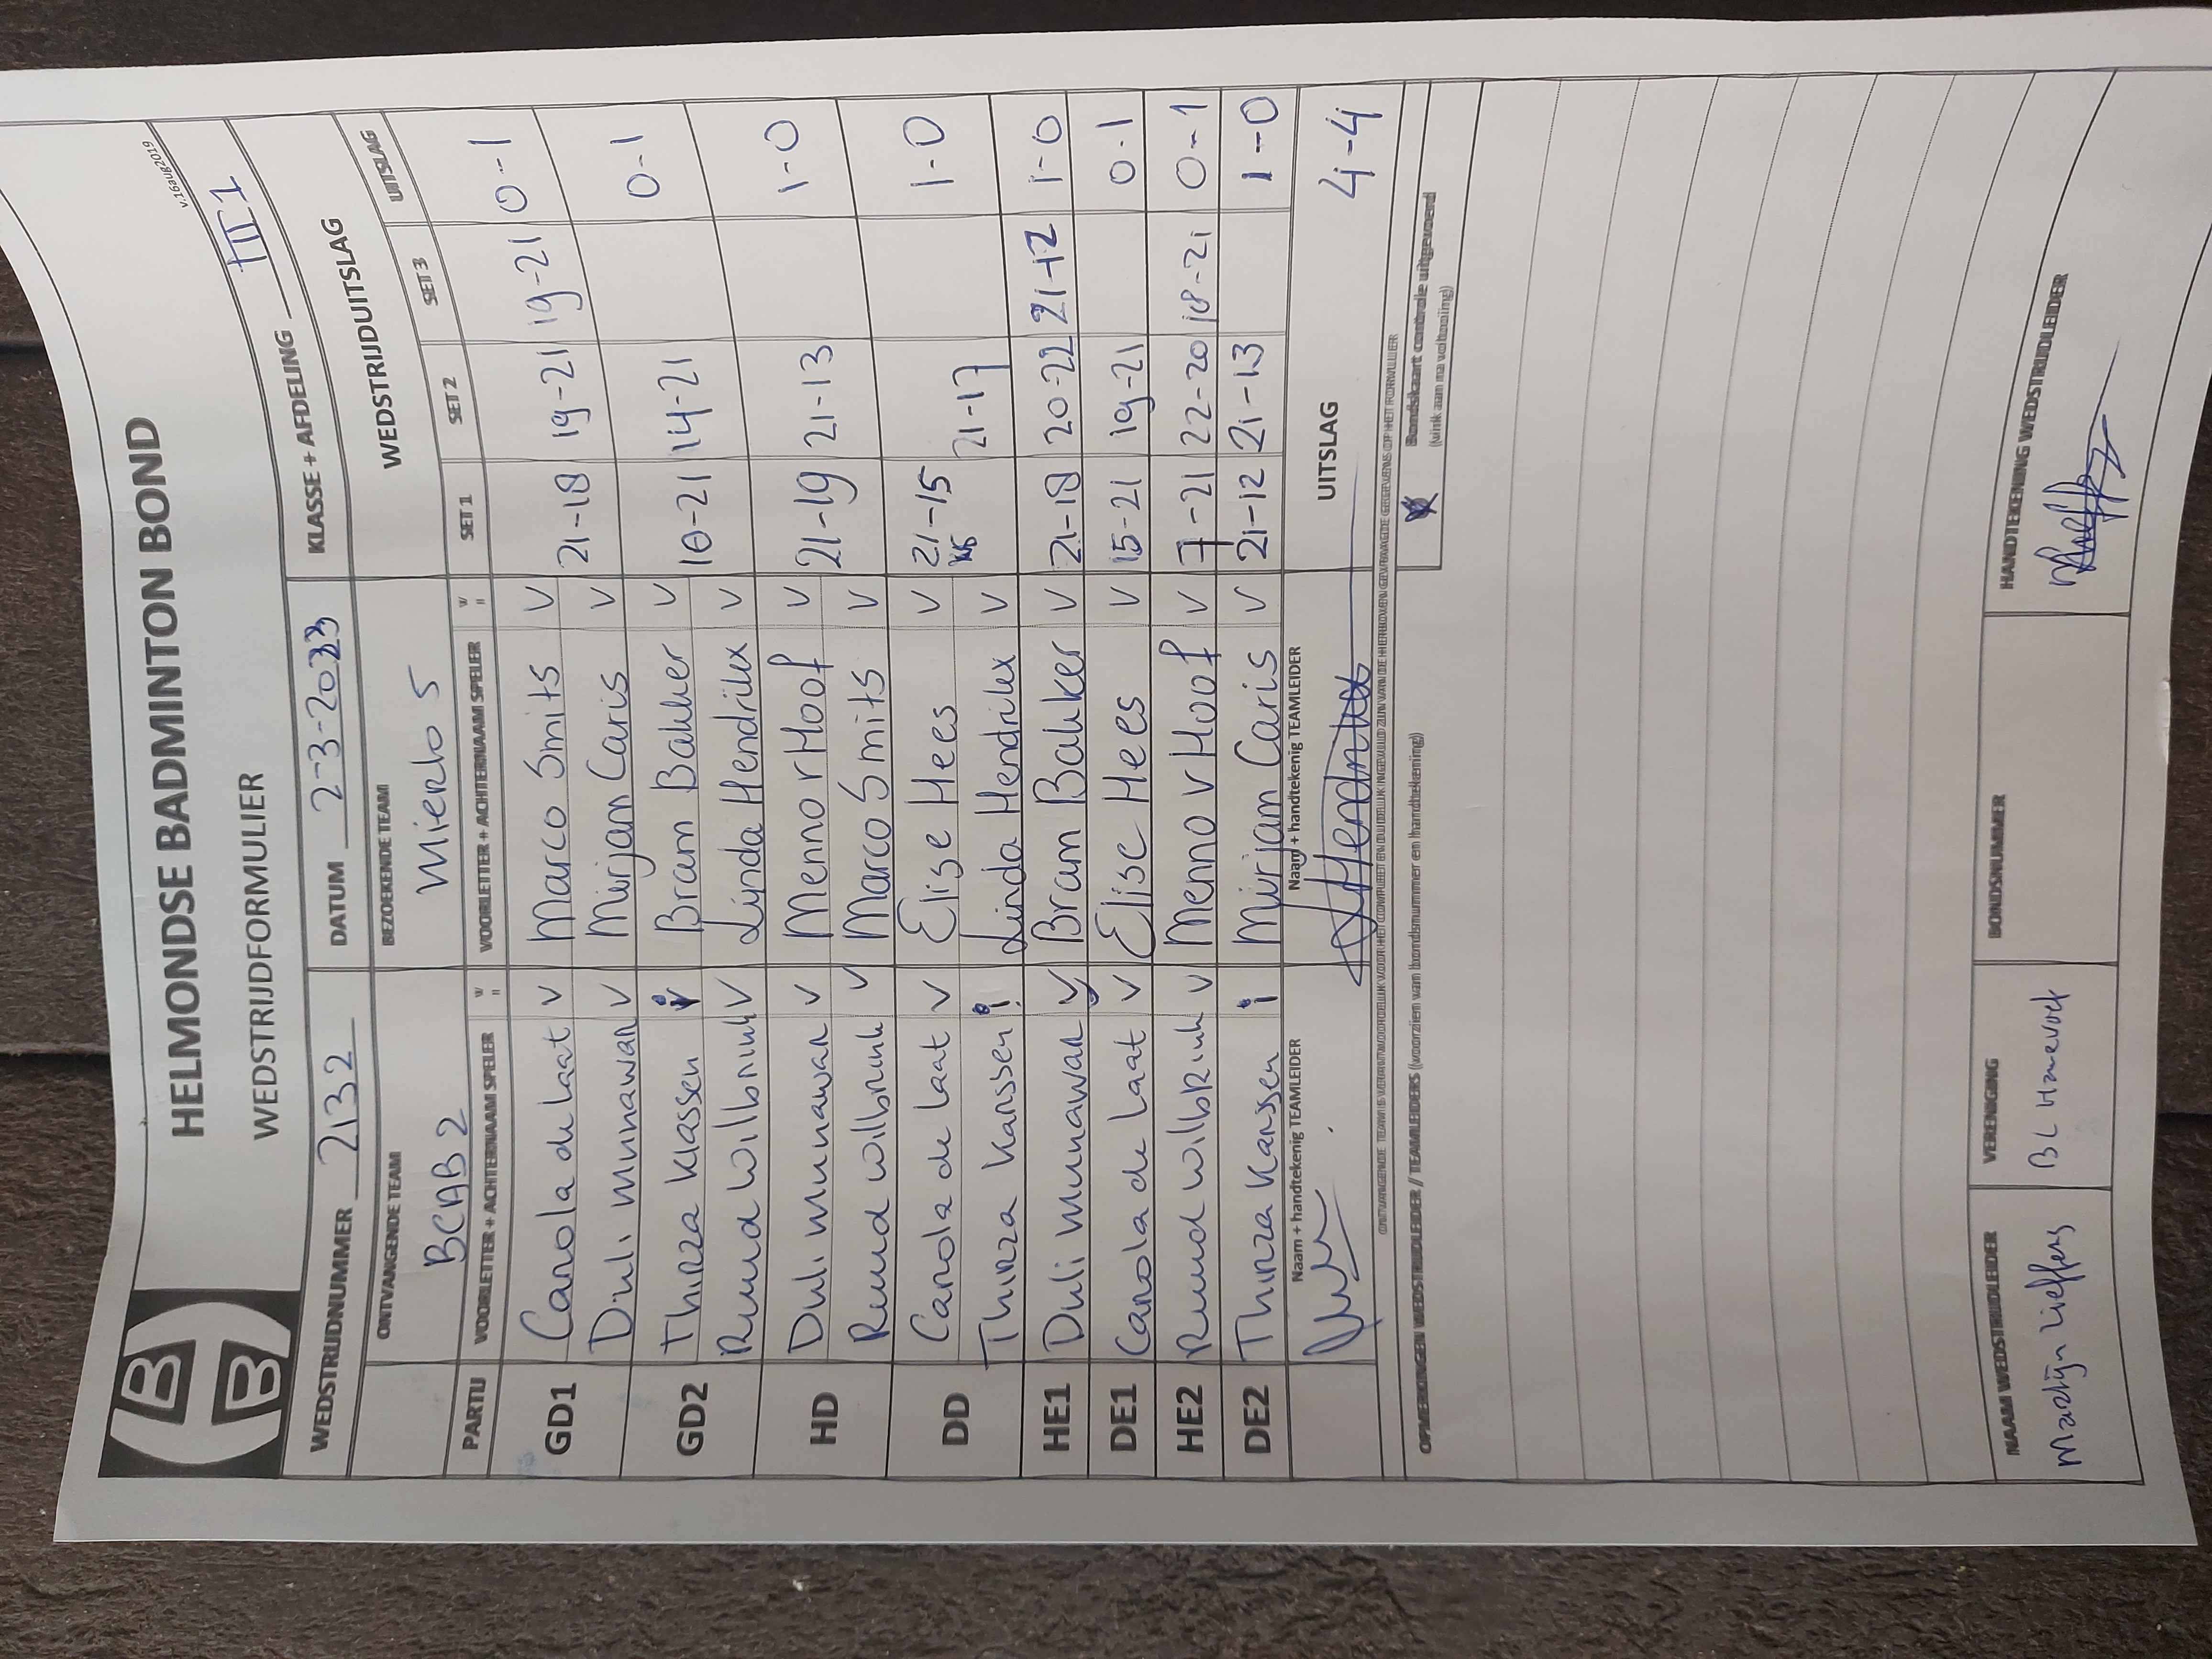 HELMONDSE BADMINTON BOND
v.16aug2019
WEDSTRIJDFORMULIER
WEDSTRIJDNUMMER 2132 DATUM 2-3-2023 KLASSE + AFDELING III 1
ONTVANGENDE TEAM BEZOEKENDE TEAM WEDSTRIJDUITSLAG
BCAB 2 Mierlo 5
PARTIJ VOORLETTER + ACHTERNAAM SPELER VOORLETTER + ACHTERNAAM SPELER SET 1 SET 2 SET 3 UITSLAG
GD1 Carola de Laat v Marco Smits v 21-18 19-21 19-21 0-1
Duli Munawar v Mirjam Caris v
GD2 Thirza Klassen Bram Bakker v 16-21 14-21 0-1
Ruud Wilbrink v Linda Hendrikx v
HD Duli Munawar v Menno v Hoof v 21-19 21-13 1-0
Ruud Wilbrink v Marco Smits v
DD Carola de Laat v Elise Hees v 21-15 21-17 1-0
Thirza Klanssen Linda Hendrikx v
HE1 Duli Munawar v Bram Bakker v 21-18 20-22 21-12 1-0
DE1 Carola de Laat v Elise Hees v 15-21 19-21 0-1
HE2 Ruud Wilbrink v Menno v Hoof v 7-21 22-20 18-21 0-1
DE2 Thirza Klanssen Mirjam Caris v 21-12 21-13 1-0
Naam + handtekenig TEAMLEIDER Naam + handtekenig TEAMLEIDER UITSLAG 4-4
Hendrikx
ONTVANGENDE TEAM IS VERANTWOORDELIJK VOOR HET COMPLEET EN DUIDELIJK INGEVULD ZIJN VAN DE HIERBOVEN GEVRAAGDE GEGEVENS OP HET FORMULIER
OPMERKINGEN WEDSTRIJDLEIDER / TEAMLEIDERS (voorzien van bondsnummer en handtekening)
Bondskaart controle uitgevoerd
(vink aan na voltooiing)
NAAM WEDSTRIJDLEIDER VERENIGING BONDSNUMMER HANDTEKENING WEDSTRIJDLEIDER
Martijn Lieffers BL Hanevoet